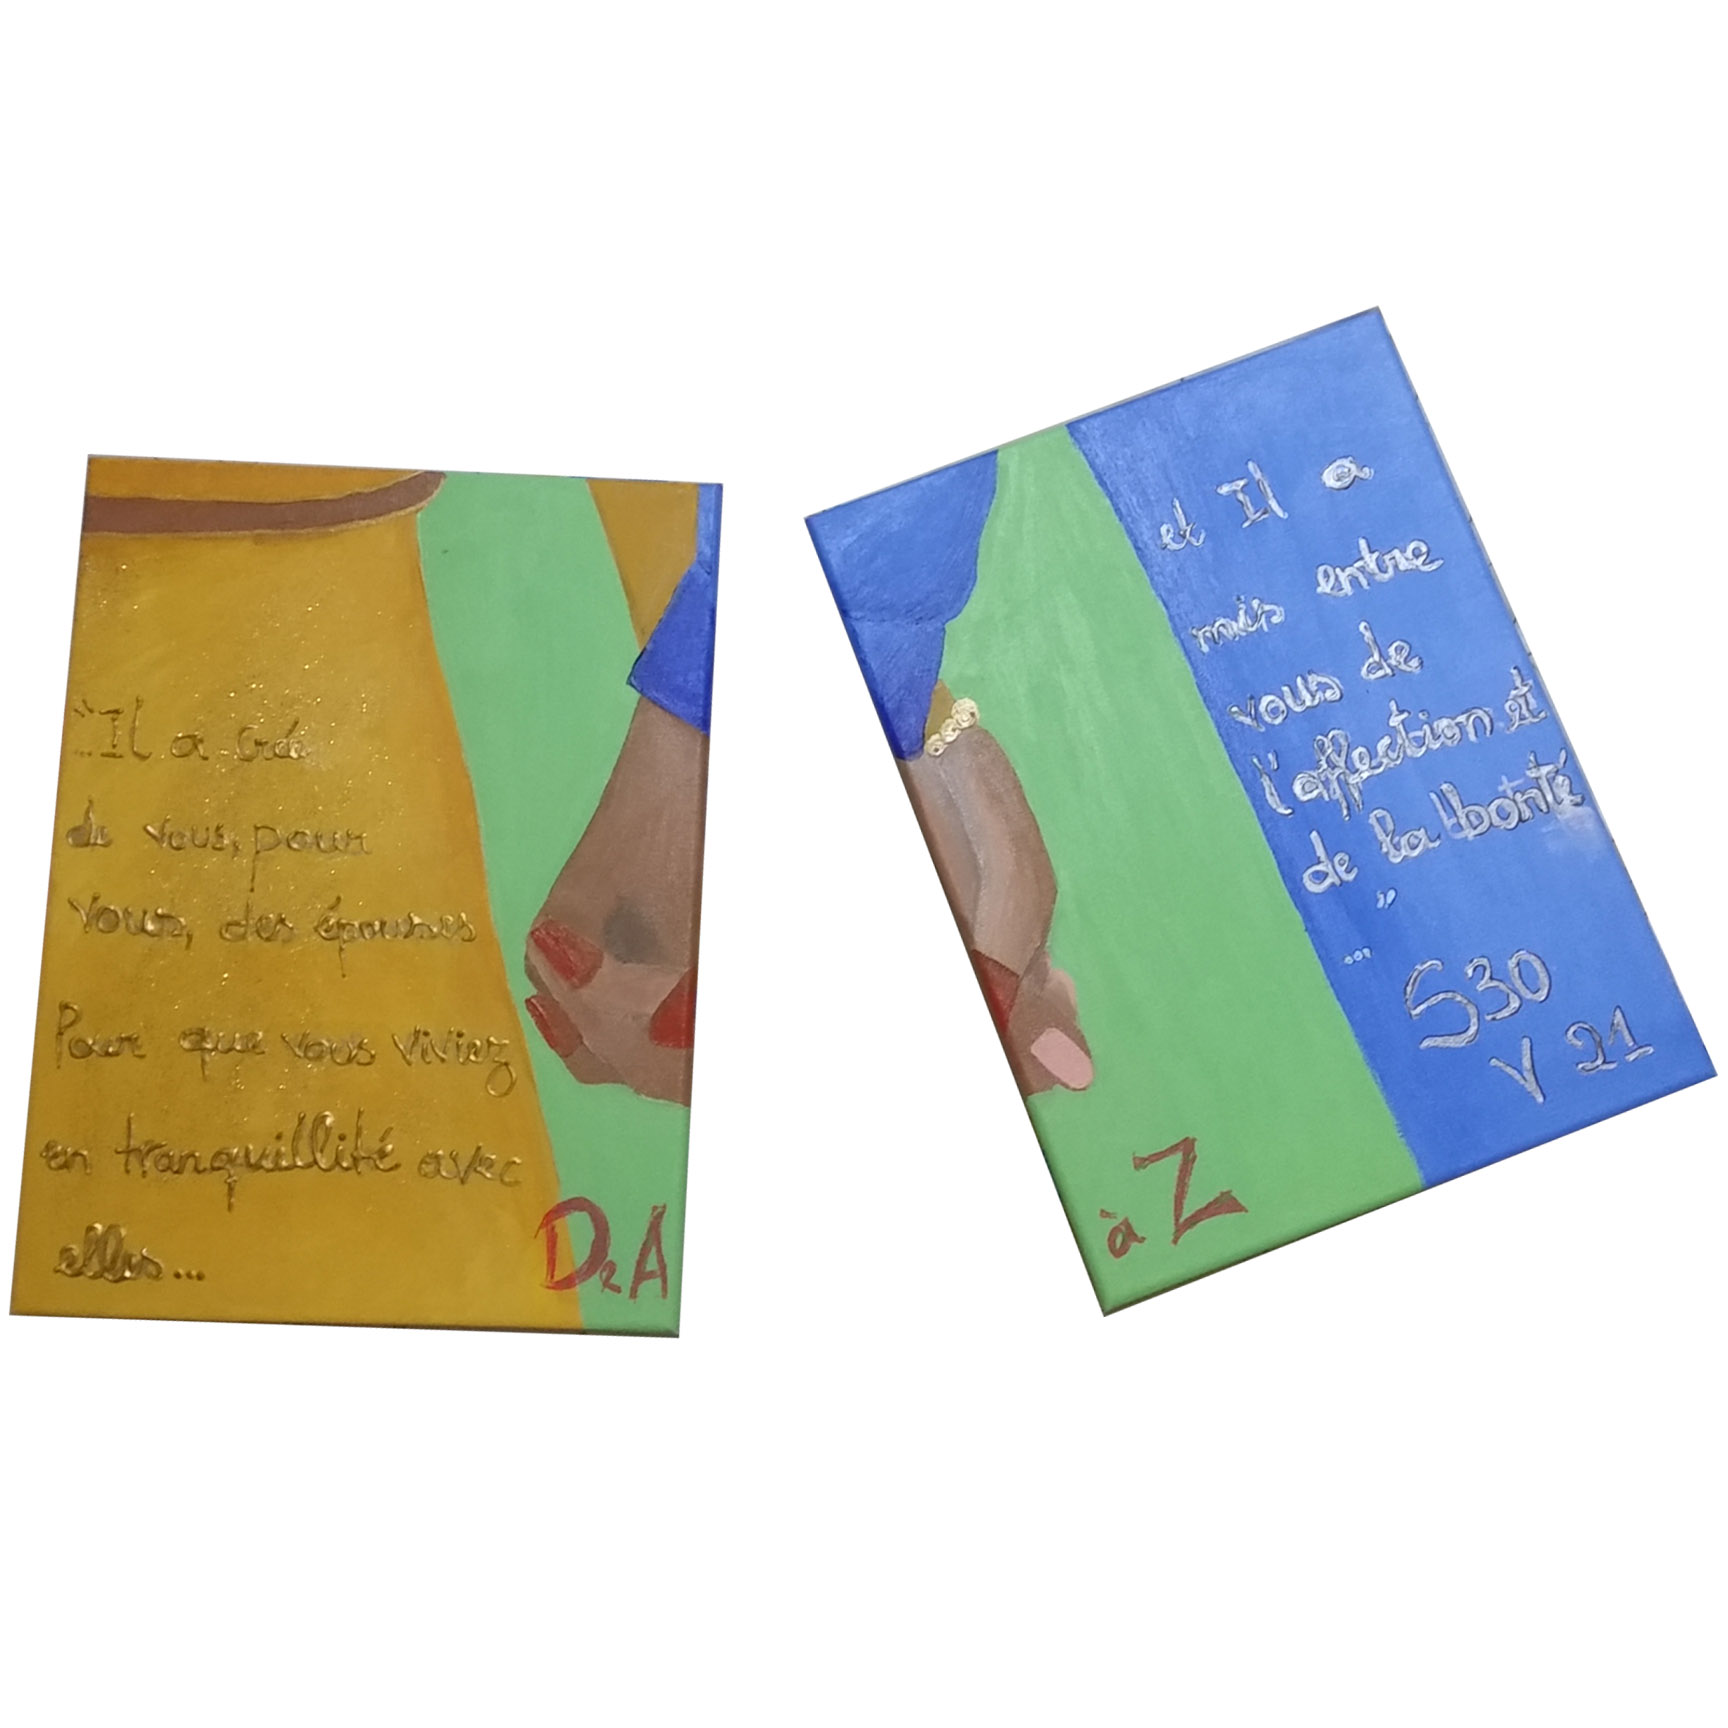 "Il a créé
de vous, pour
vous, des épouses
Pour que vous viviez
en tranquillité avec
elles...
De A
et Il a
mis entre
vous de
l'affection et
de la bonté
"
...
S30
V 21
à Z